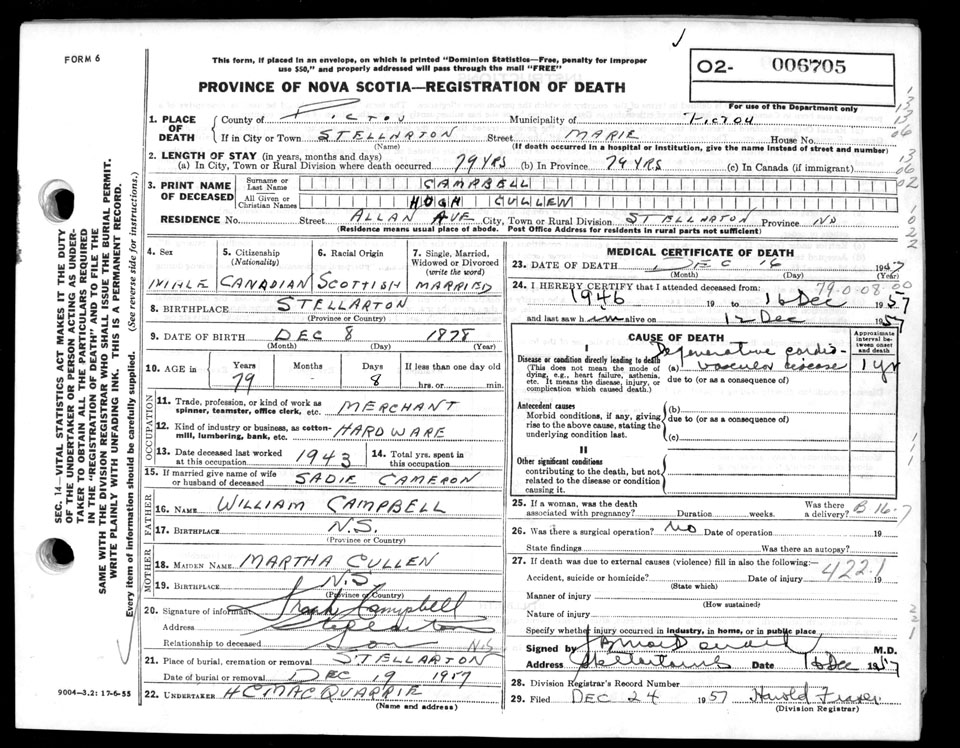 FORM 6
This form, if placed in an envelope, on which is printed "Dominion Statistics—Free, penalty for improper
use $50," and properly addressed will pass through the mail "FREE"
02- 006705
PROVINCE OF NOVA SCOTIA—REGISTRATION OF DEATH
For use of the Department only
1. PLACE OF DEATH
County of PICTOU Municipality of PICTOU
If in City or Town STELLARTON Street MARIE House No.
(Name) (If death occurred in a hospital or institution, give the name instead of street and number)
2. LENGTH OF STAY (in years, months and days)
(a) In City, Town or Rural Division where death occurred 79 YRS (b) In Province 79 YRS (c) In Canada (if immigrant)
3. PRINT NAME OF DECEASED
Surname or Last Name CAMPBELL
All Given or Christian Names HUGH CULLEN
RESIDENCE No. Street ALLAN AVE City, Town or Rural Division STELLARTON Province NS
(Residence means usual place of abode. Post Office Address for residents in rural parts not sufficient)
4. Sex MALE
5. Citizenship (Nationality) CANADIAN
6. Racial Origin SCOTTISH
7. Single, Married, Widowed or Divorced (write the word) MARRIED
8. BIRTHPLACE STELLARTON
(Province or Country)
9. DATE OF BIRTH DEC 8 1878
(Month) (Day) (Year)
10. AGE in Years 79 Months - Days 8 If less than one day old
hrs. or min.
OCCUPATION
11. Trade, profession, or kind of work as
spinner, teamster, office clerk, etc. MERCHANT
12. Kind of industry or business, as cotton-
mill, lumbering, bank, etc. HARDWARE
13. Date deceased last worked
at this occupation 1943
14. Total yrs. spent in
this occupation
15. If married give name of wife
or husband of deceased SADIE CAMERON
FATHER
16. NAME WILLIAM CAMPBELL
17. BIRTHPLACE N.S.
(Province or Country)
MOTHER
18. MAIDEN NAME MARTHA CULLEN
19. BIRTHPLACE N.S.
(Province or Country)
20. Signature of informant Frank Campbell
Address Stellarton
Relationship to deceased Son N.S.
21. Place of burial, cremation or removal STELLARTON
Date of burial or removal DEC 19 1957
22. UNDERTAKER H C MACQUARRIE
(Name and address)
MEDICAL CERTIFICATE OF DEATH
23. DATE OF DEATH DEC 16 1957
(Month) (Day) (Year)
79-0-08-00
24. I HEREBY CERTIFY that I attended deceased from:
1946 19 to 16 Dec 1957
and last saw him alive on 12 Dec 1957
CAUSE OF DEATH
Approximate interval between onset and death
I
Disease or condition directly leading to death
(This does not mean the mode of
dying, e.g., heart failure, asthenia,
etc. It means the disease, injury, or
complication which caused death.)
(a) Degenerative cardio-
vascular disease 1 yr
due to (or as a consequence of)
Antecedent causes
Morbid conditions, if any, giving
rise to the above cause, stating the
underlying condition last.
(b)
due to (or as a consequence of)
(c)
II
Other significant conditions
contributing to the death, but not
related to the disease or condition
causing it.
25. If a woman, was the death
associated with pregnancy? Duration weeks. Was there
a delivery?
B 16-7
26. Was there a surgical operation? No Date of operation
State findings Was there an autopsy?
27. If death was due to external causes (violence) fill in also the following:
422.1
Accident, suicide or homicide? Date of injury 19
(State which)
Manner of injury
(How sustained)
Nature of injury
Specify whether injury occurred in industry, in home, or in public place
Signed by M.D.
Address Stellarton N.S. Date 16 Dec 1957
28. Division Registrar's Record Number
29. Filed DEC 24 1957 Harold Fraser
(Division Registrar)
SEC. 14—VITAL STATISTICS ACT MAKES IT THE DUTY
OF THE UNDERTAKER OR PERSON ACTING AS UNDER-
TAKER TO OBTAIN ALL THE PARTICULARS REQUIRED
IN THE "REGISTRATION OF DEATH" AND TO FILE THE
SAME WITH THE DIVISION REGISTRAR WHO SHALL ISSUE THE BURIAL PERMIT.
WRITE PLAINLY WITH UNFADING INK. THIS IS A PERMANENT RECORD.
Every item of information should be carefully supplied. (See reverse side for instructions.)
9004-3.2: 17-6-55